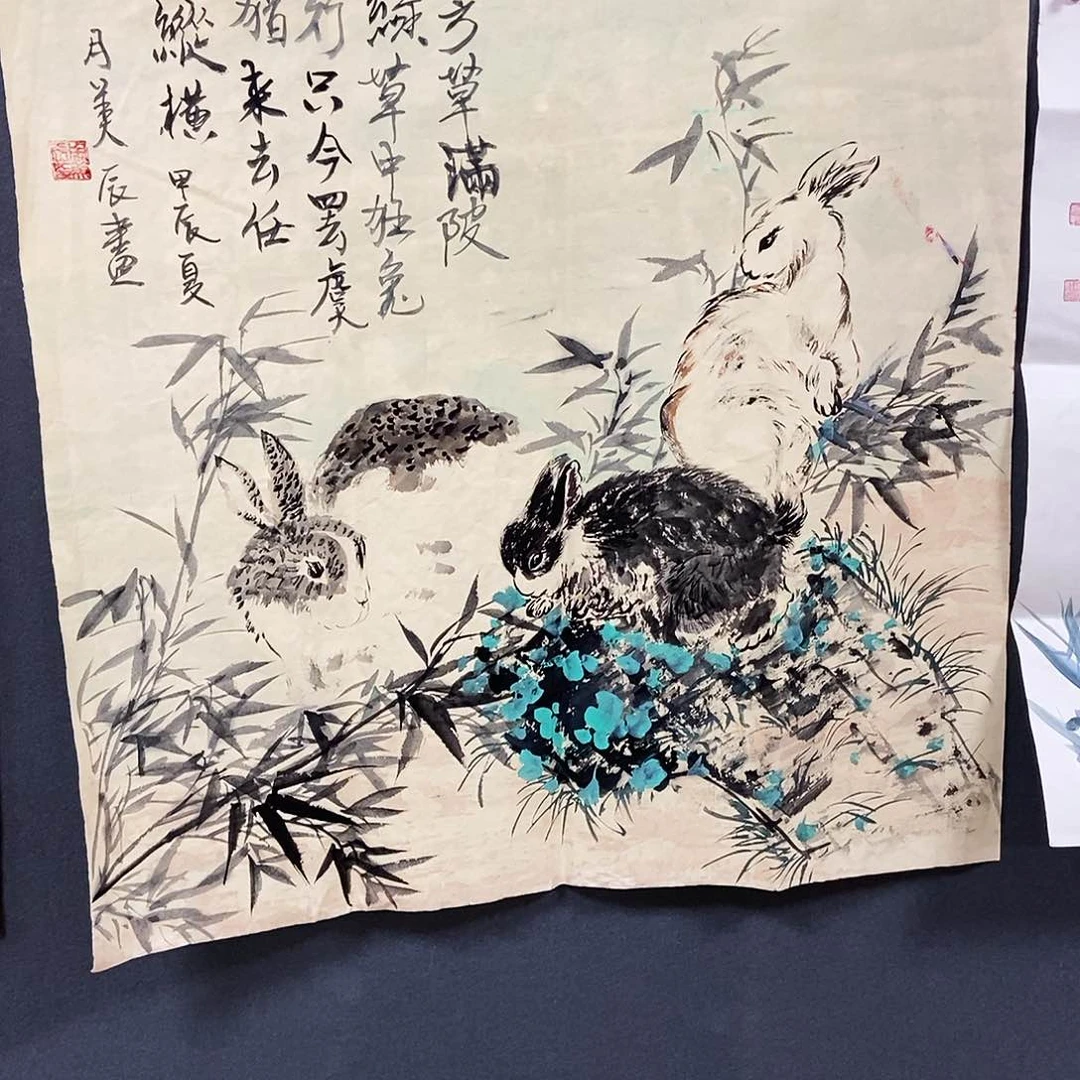 草滿陂
綠草中狂兔
行只今罢虞
来去任
縱橫 甲辰夏
月美辰畫